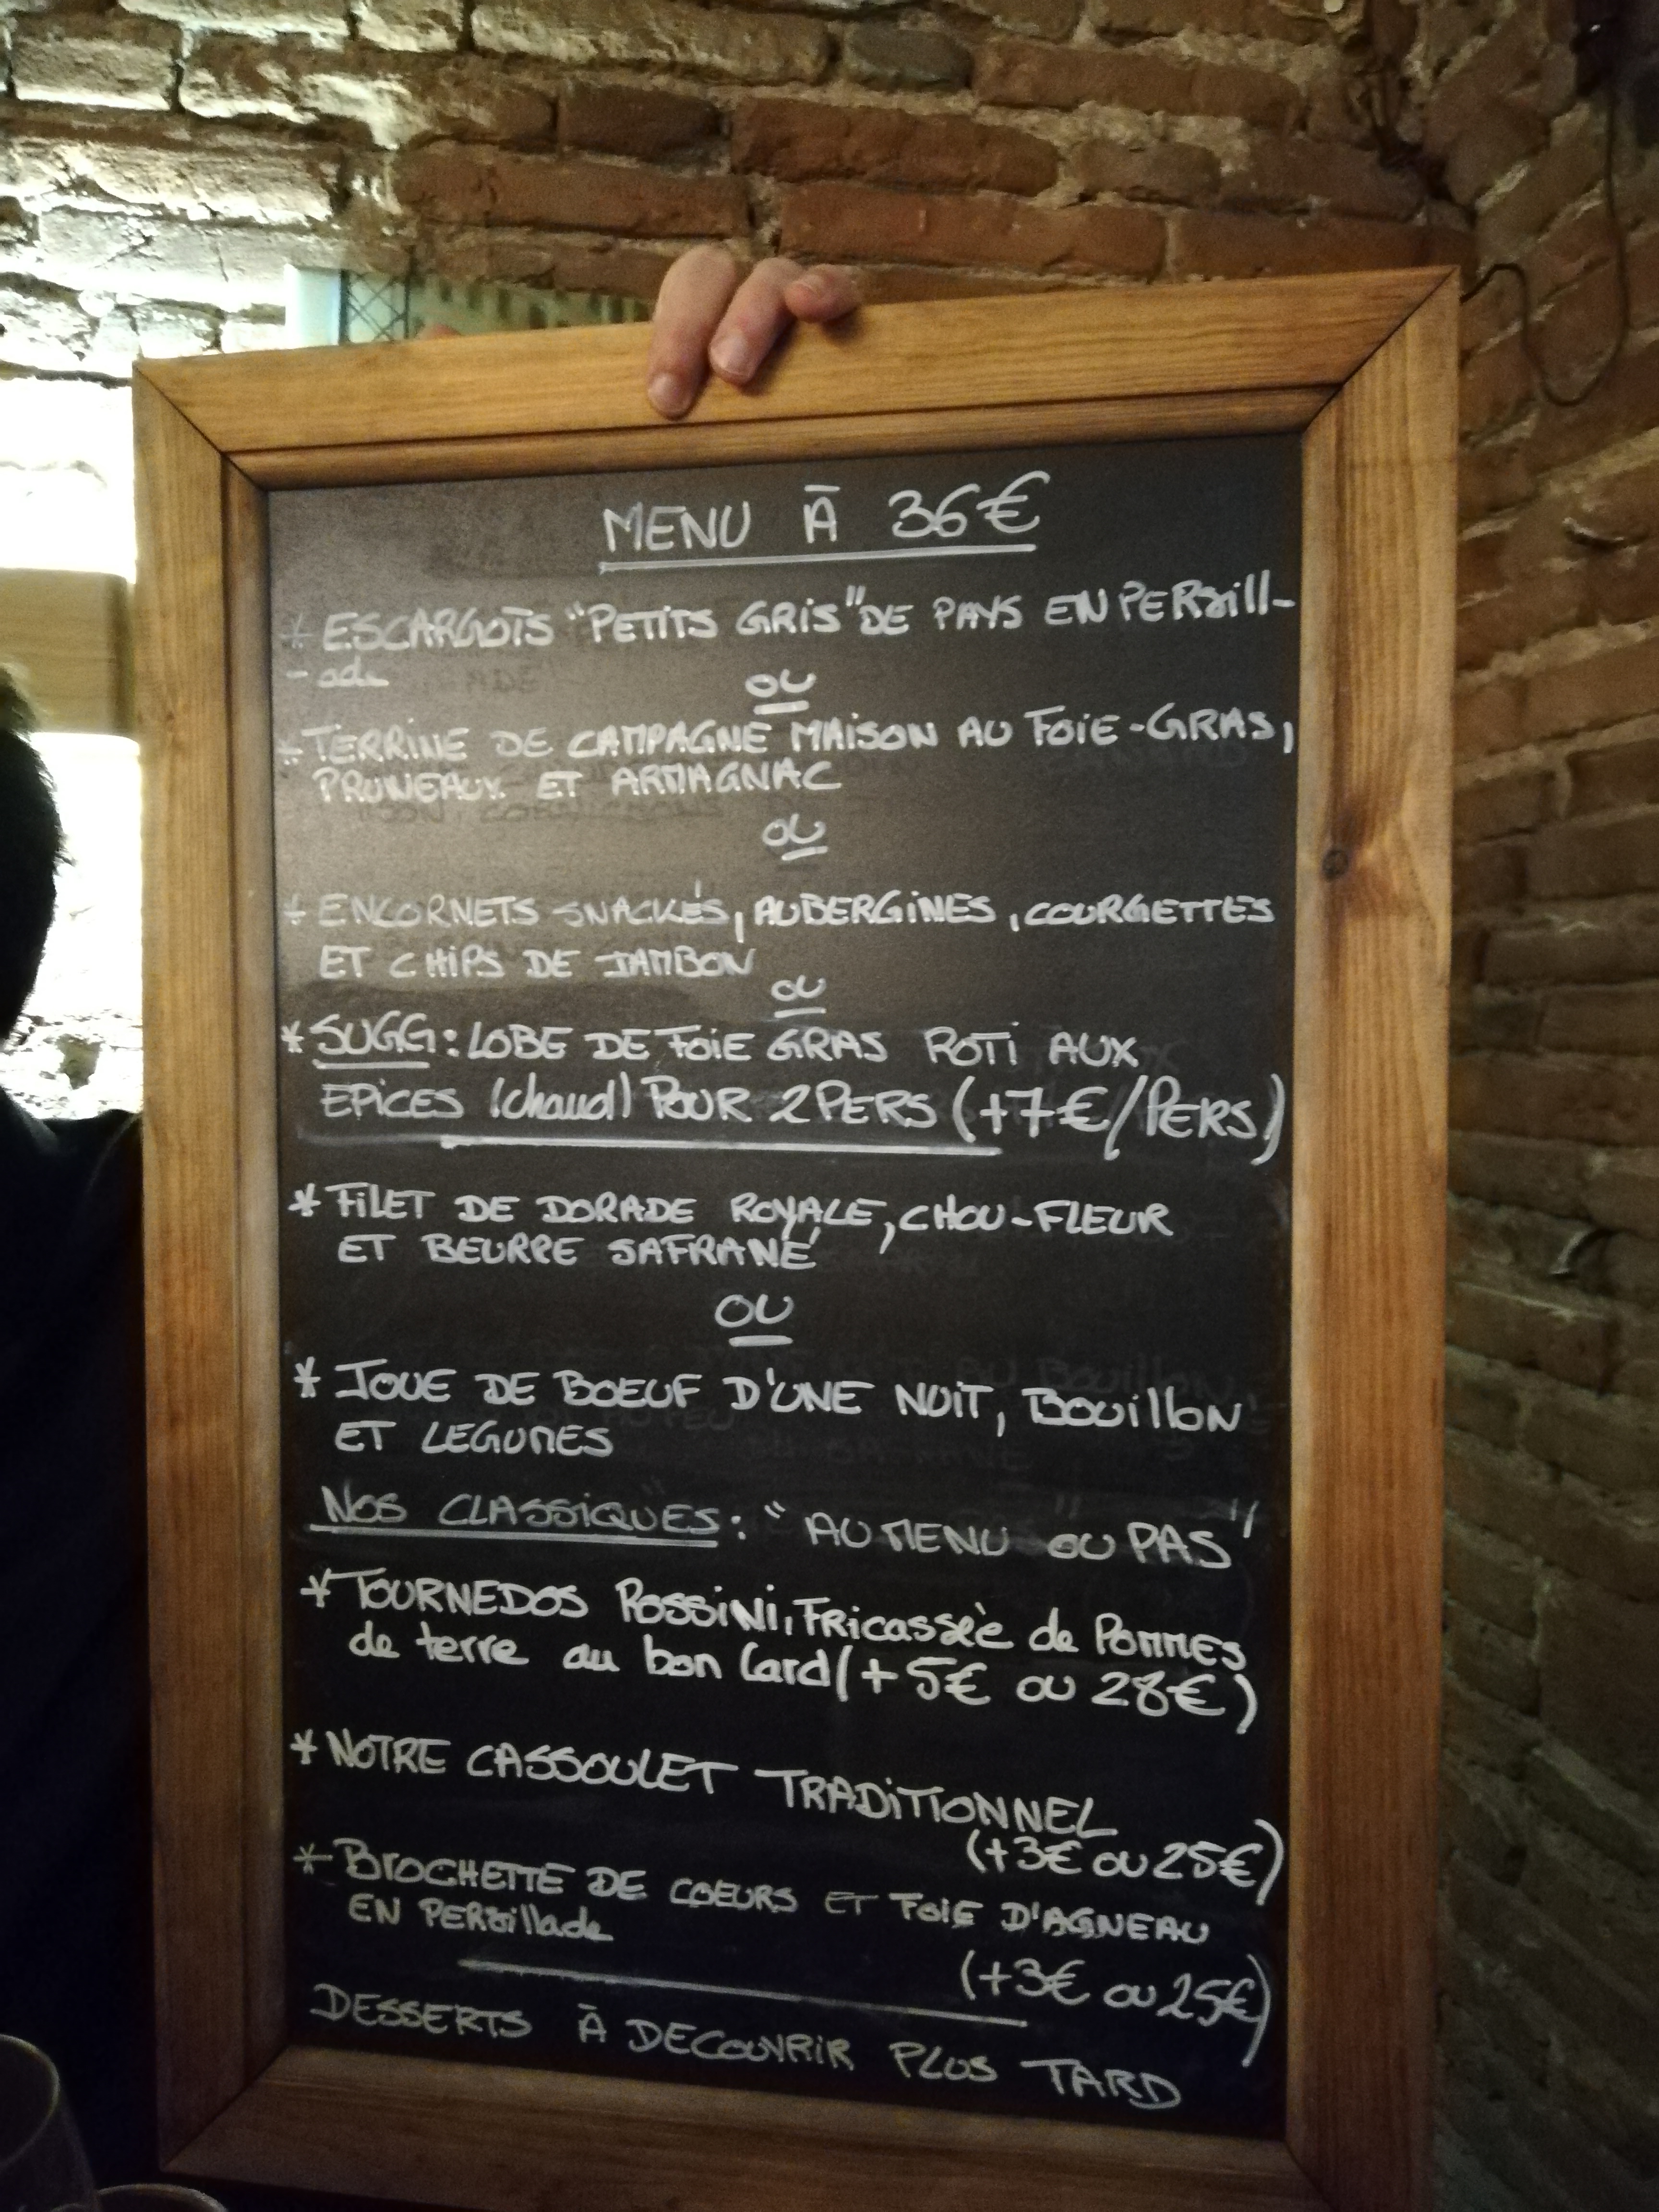 MENU À 36€
* ESCARGOTS "PETITS GRIS" DE PAYS EN PERsill-
- ade
OU
* TERRINE DE CAMPAGNE MAISON AU FOIE-GRAS,
PRUNEAUX ET ARMAGNAC
OU
* ENCORNETS SNACKÉS, AUBERGINES, COURGETTES
ET CHIPS DE JAMBON
OU
* SUGG: LOBE DE FOIE GRAS ROTI AUX
EPICES (chaud) POUR 2 PERS (+7€/PERS)
* FILET DE DORADE ROYALE, CHOU-FLEUR
ET BEURRE SAFRANÉ
OU
* JOUE DE BOEUF D'UNE NUIT, BOUillON
ET LEGUMES
NOS CLASSIQUES: "AU MENU OU PAS"
* TOURNEDOS ROSSINI, FRicassèe de POMMES
de terre au bon lard (+5€ ou 28€)
* NOTRE CASSOULET TRADITIONNEL
(+3€ ou 25€)
* BROCHETTE DE COEURS ET FOIE D'AGNEAU
EN PERsillade
(+3€ ou 25€)
DESSERTS À DECOUVRIR PLUS TARD